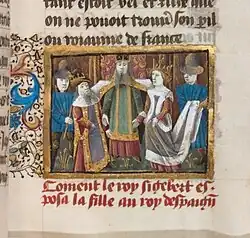 tant estoit bel et
on ne pouoit trouue son pil
ou royaume de france
Coment le roy sigebert es-
posa la fille au roy despaigne